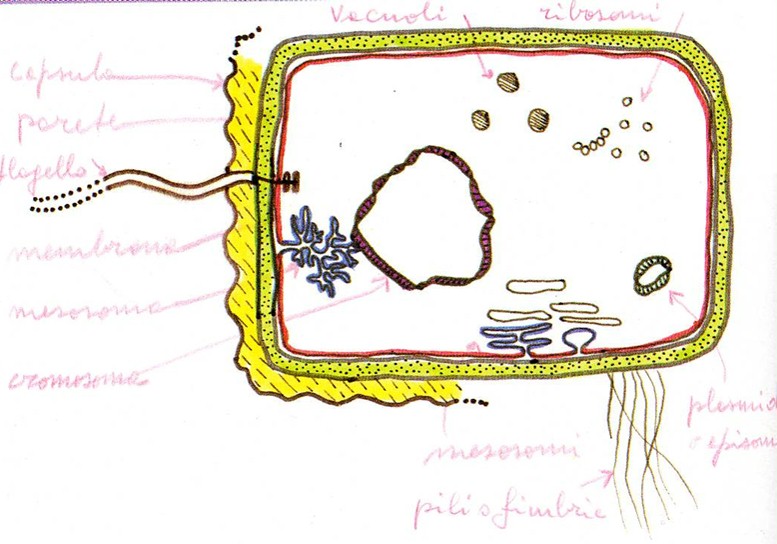 vacuoli
ribosomi
capsula
parete
flagello
membrana
mesosoma
cromosoma
mesosomi
pili o fimbrie
plasmid
o episom